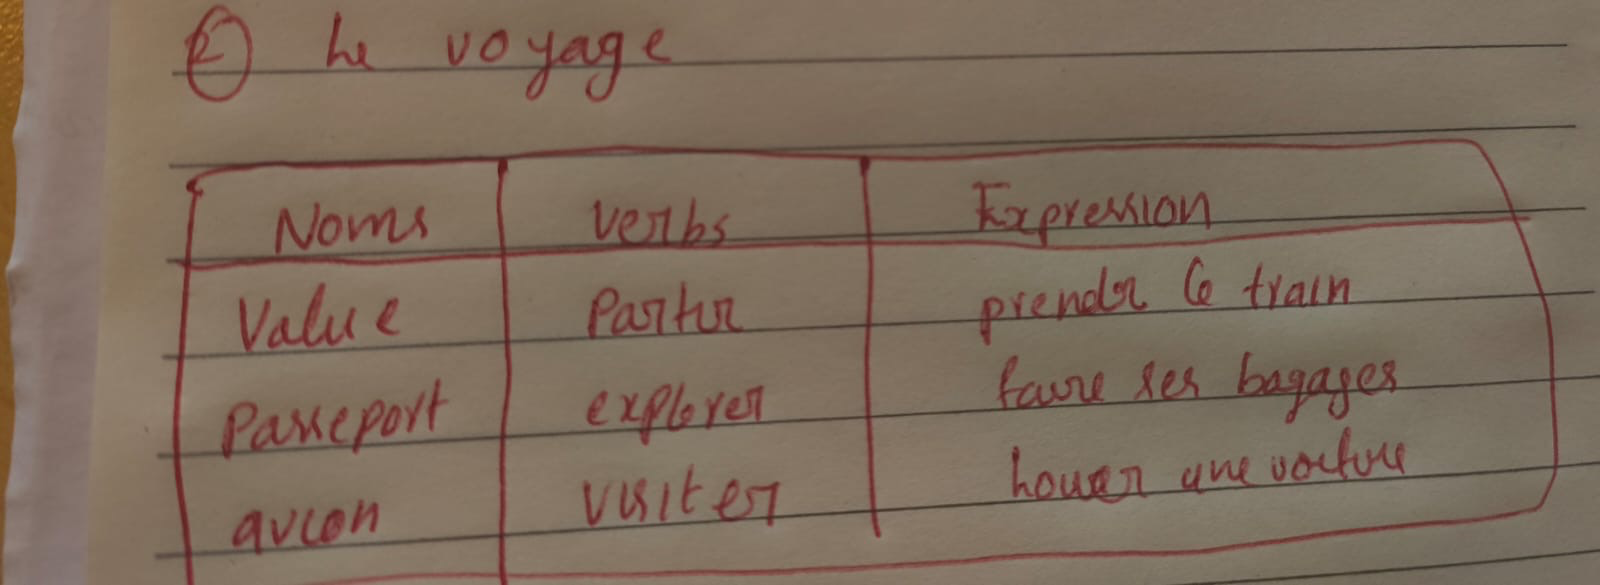 ② Le voyage
Noms verbs Expression
Value Partir prendr le train
Passeport explorer faire ses bagages
avion visiter louer une voiture